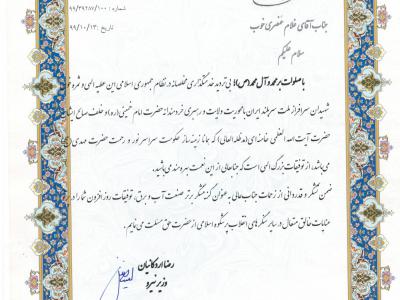 شماره: ۹۹/۳۹۲۸۷/۱۰۰
تاریخ: ۹۹/۱۰/۱۳
جناب آقای غلام خوب
سلام علیکم
با صلوات بر محمد و آل محمد (ص)؛ بی تردید خدمتگذاری مخلصانه در نظام جمهوری اسلامی این عطیه الهی و ثمره خون
شهیدان سرافراز ملت سربلند ایران با محوریت ولایت و رهبری خردمندانه حضرت امام خمینی (ره) و خلف صالح ایشان
حضرت آیت الله العظمی خامنه ای (مدظله العالی) که همانا زمینه ساز حکومت سراسر نور و رحمت حضرت مهدی
می باشد، از توفیقات بزرگ الهی است که جنابعالی از این نعمت بهره مند می باشید.
ضمن تشکر و قدردانی از زحمات جنابعالی به عنوان کنشگر برتر صنعت آب و برق، توفیقات روز افزون شما را در
عنایات خالق متعال در سایر سنگرهای انقلاب پرشکوه اسلامی از حضرت حق مسئلت می نمایم.
رضا اردکانیان
وزیر نیرو